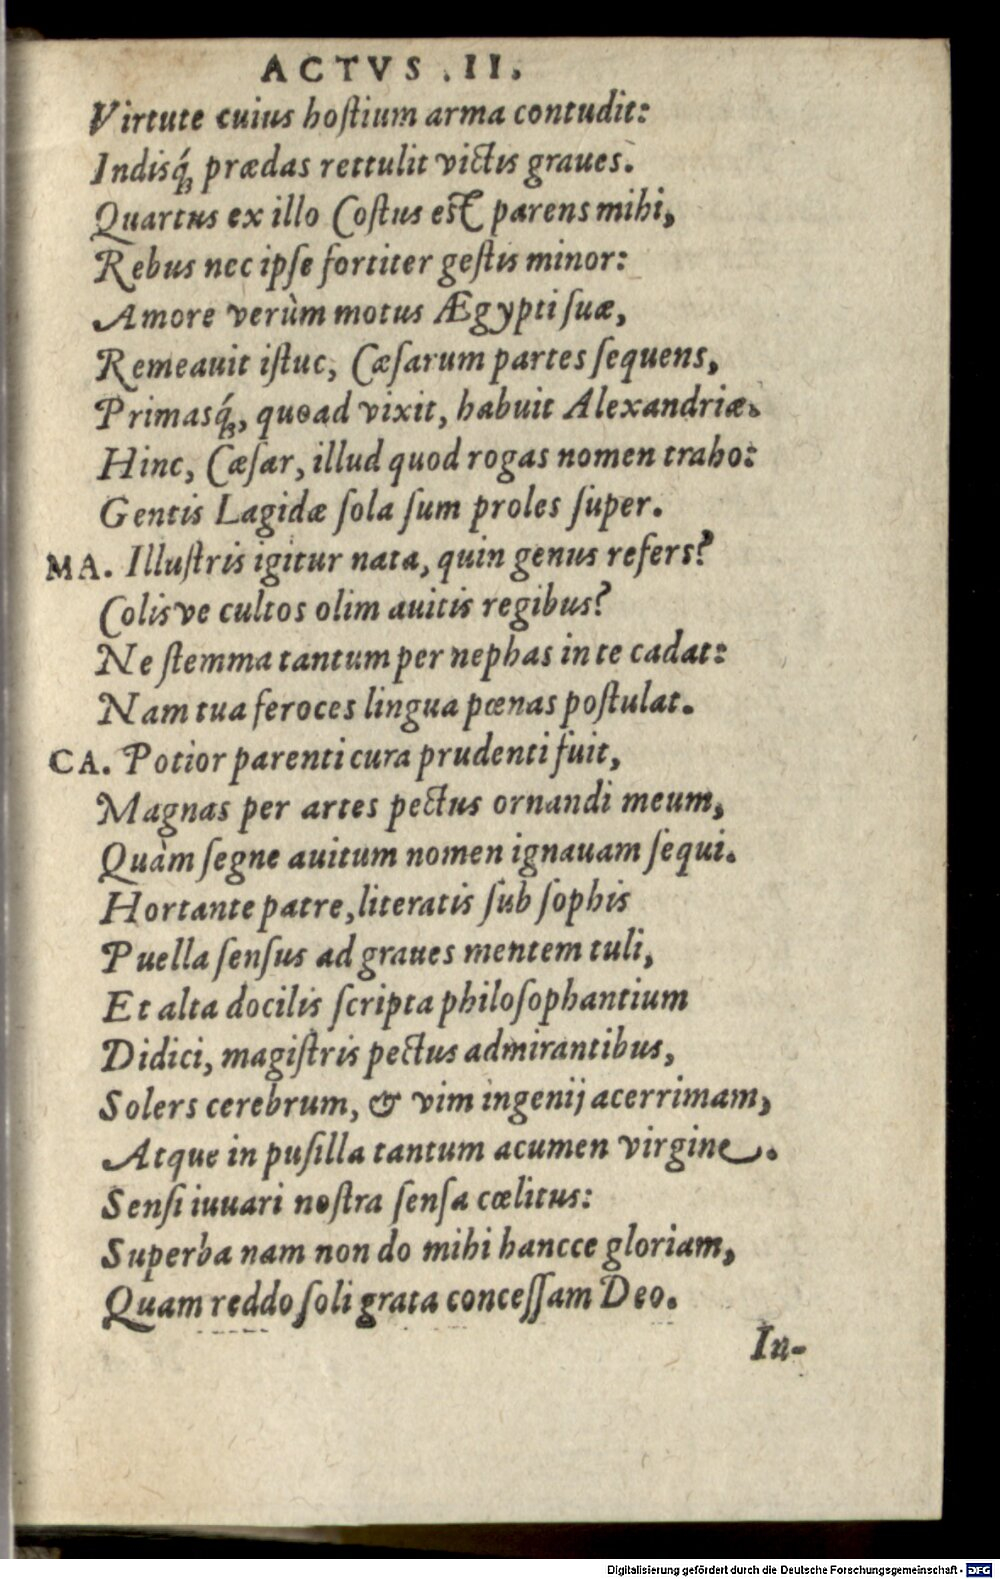 ACTVS .II.
Virtute cuius hoſtium arma contudit:
Indisq́; prædas rettulit victis graues.
Quartus ex illo Coſtus est parens mihi,
Rebus nec ipſe fortiter geſtis minor:
Amore verùm motus Ægypti ſuæ,
Remeauit iſtuc, Cæſarum partes ſequens,
Primasq́;, quoad vixit, habuit Alexandriæ.
Hinc, Cæſar, illud quod rogas nomen traho:
Gentis Lagidæ ſola ſum proles ſuper.
MA. Illuſtris igitur nata, quin genus refers?
Colisve cultos olim auitis regibus?
Ne ſtemma tantum per nephas in te cadat:
Nam tua feroces lingua pœnas poſtulat.
CA. Potior parenti cura prudenti fuit,
Magnas per artes pectus ornandi meum,
Quàm ſegne auitum nomen ignauam ſequi.
Hortante patre, literatis ſub ſophis
Puella ſenſus ad graues mentem tuli,
Et alta docilis ſcripta philoſophantium
Didici, magiſtris pectus admirantibus,
Solers cerebrum, & vim ingenij acerrimam,
Atque in puſilla tantum acumen virgine.
Senſi iuuari noſtra ſenſa cœlitus:
Superba nam non do mihi hancce gloriam,
Quam reddo ſoli grata conceſſam Deo.
In-
Digitalisierung gefördert durch die Deutsche Forschungsgemeinschaft - DFG